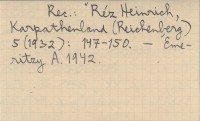 Rec.: Réz Heinrich,
Karpathenland (Reichenberg)
5 (1932): 147-150. — Eme-
ritzy A. 1942.